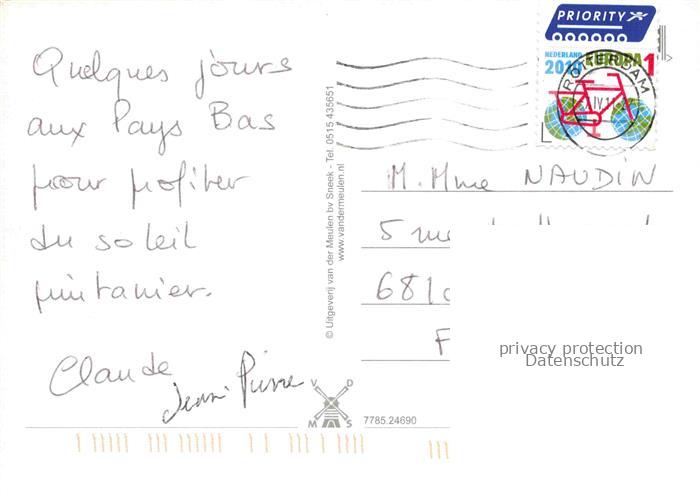 Quelques jours
aux Pays Bas
pour profiter
du soleil
printanier.
Claude
Jean-Pierre
© Uitgeverij van der Meulen bv Sneek - Tel. 0515 435651
www.vandermeulen.nl
V D
M S
7785.24690
PRIORITY
NEDERLAND EUROPA 1
2010
ROTTERDAM
M. Mme NAUDIN
5 rue
681
F
privacy protection
Datenschutz